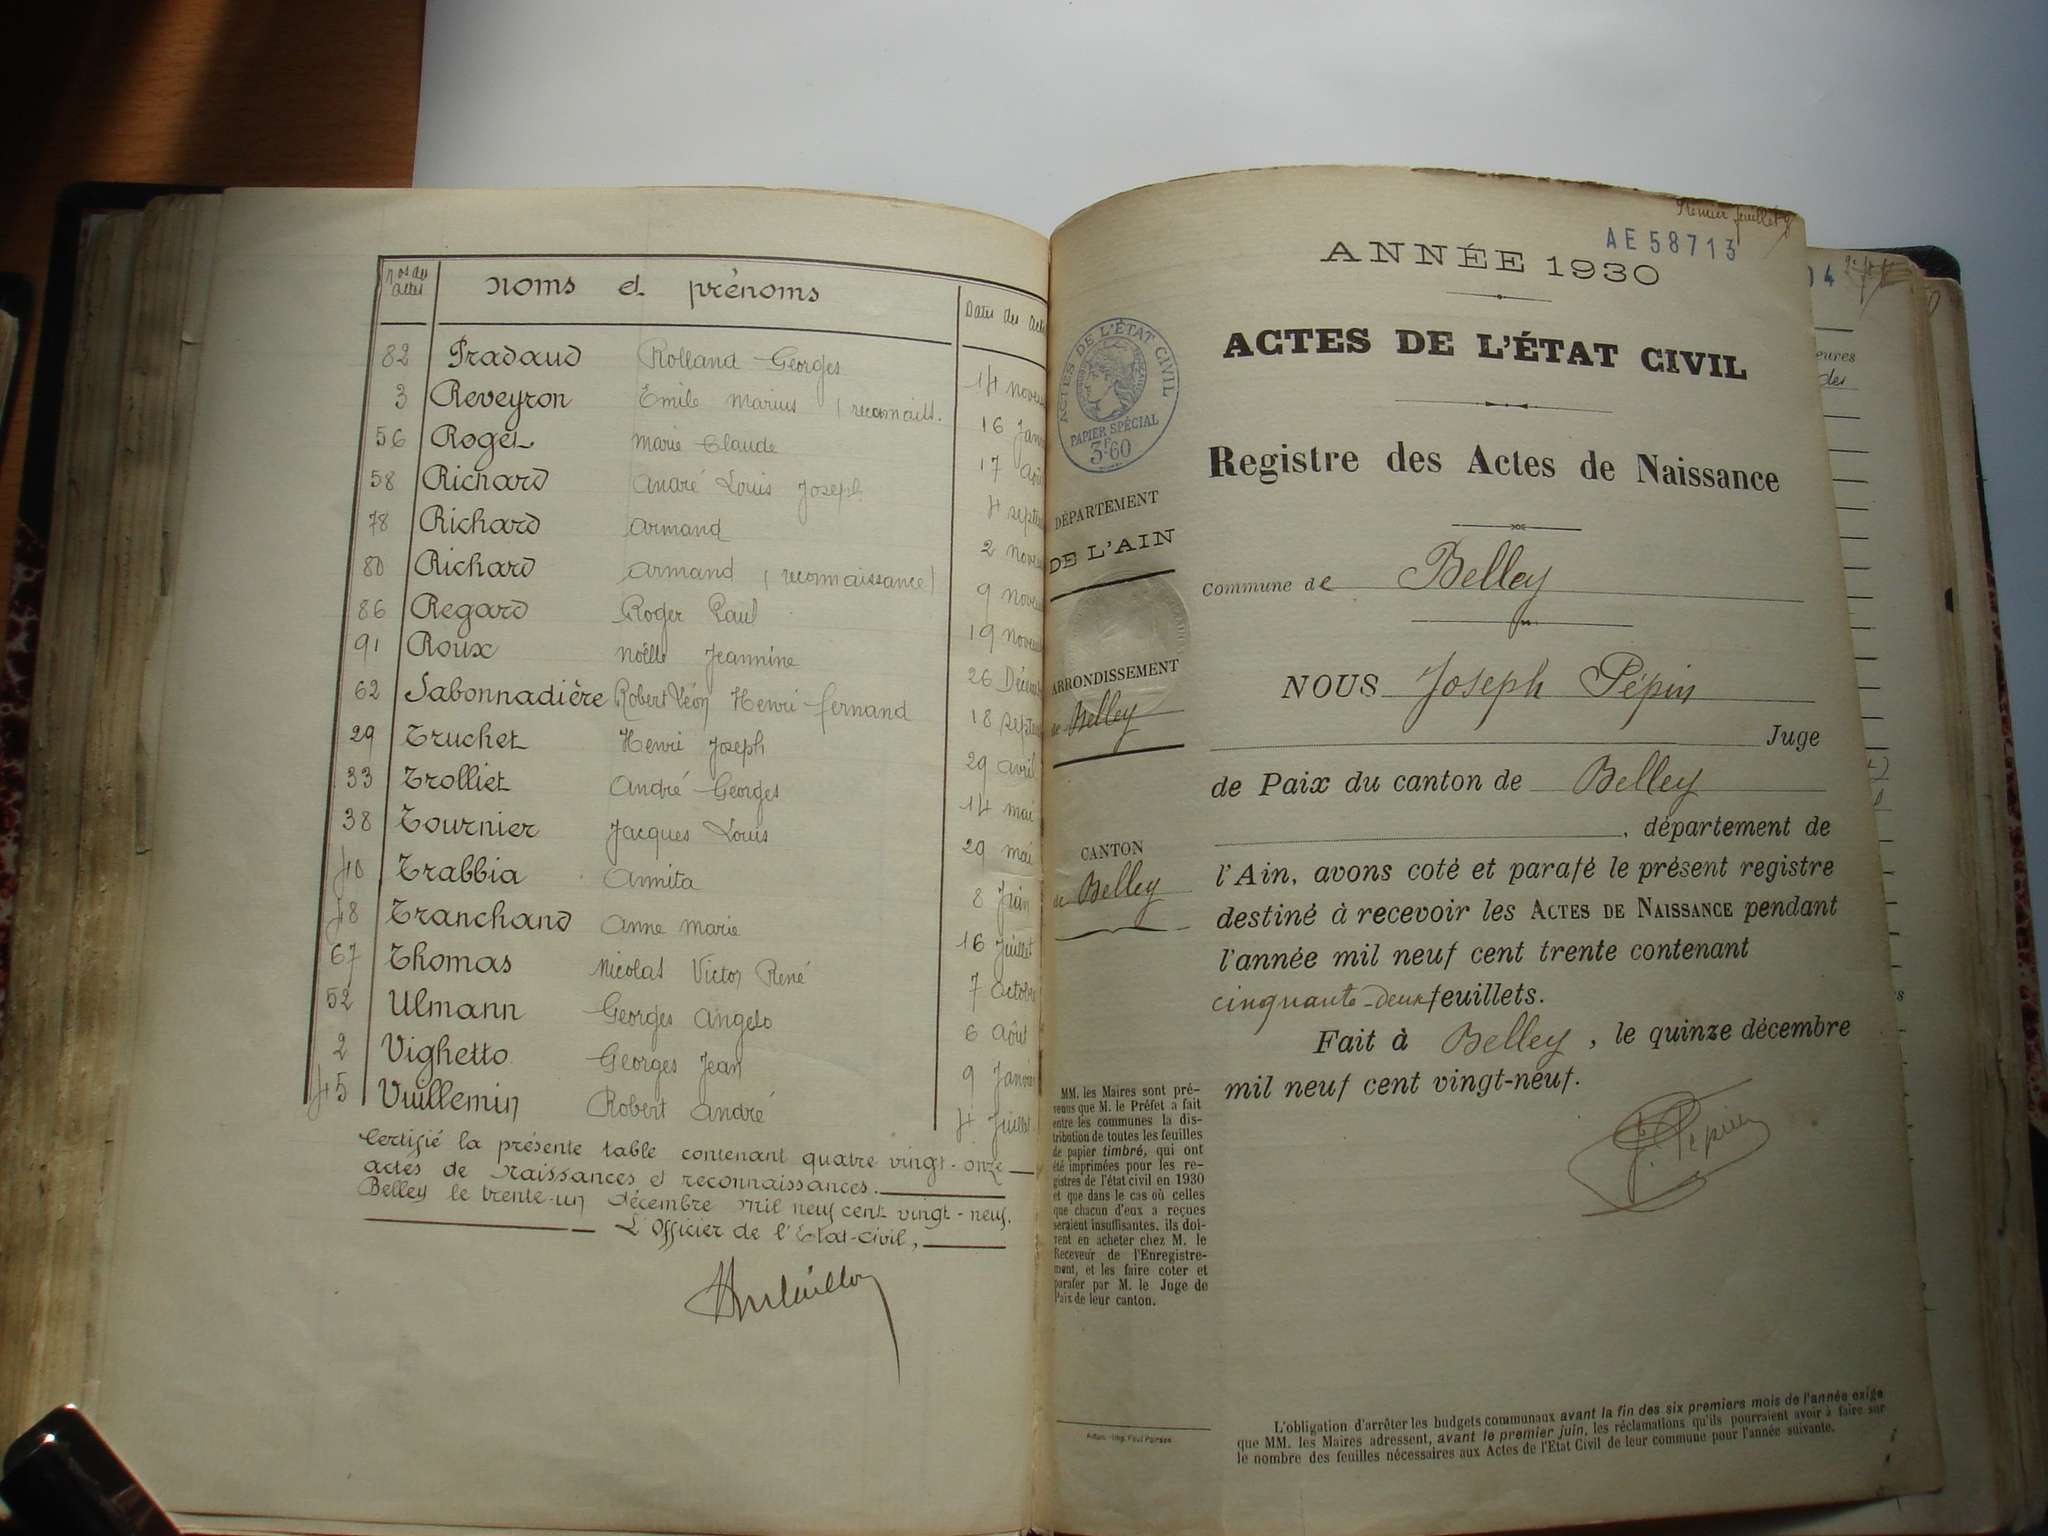 Nos des actes
Noms et prénoms
Dates des
82 Pradaud Rolland Georges 14
3 Reveyron Emile Marius (
16
56 Roger Marie Claude 17
58 Richard André Louis Joseph 4
78 Richard Armand 2
80 Richard Armand (reconnaissance) 9
86 Regard Roger Paul 19
91 Roux Noëlle Jeannine 26
62 Sabonnadière Robert Léon Henri Fernand 18
29 Truchet Henri Joseph 29 avril
33 Trolliet André Georges 14 mai
38 Tournier Jacques Louis 29 mai
40 Trabbia Annita 8 Juin
48 Tranchand Anne Marie 16 Juillet
67 Thomas Nicolas Victor René 7 Octobre
52 Ulmann Georges Angelo 6 Août
2 Vighetto Georges Jean 9
45 Vuillemin Robert André 4 Juillet
Certifié la présente table contenant quatre vingt-onze
actes de Naissances et reconnaissances.
Belley le trente-un décembre mil neuf cent vingt-neuf.
L'Officier de l'Etat-Civil,
Premier feuillet
AE 58713
ANNÉE 1930
ACTES DE L'ÉTAT CIVIL
ACTES DE L'ÉTAT CIVIL
PAPIER SPÉCIAL
3F60
Registre des Actes de Naissance
DÉPARTEMENT
DE L'AIN
Commune de Belley
ARRONDISSEMENT
de Belley
NOUS Joseph Pépin
Juge
de Paix du canton de Belley
, département de
CANTON
de Belley
l'Ain, avons coté et parafé le présent registre
destiné à recevoir les ACTES DE NAISSANCE pendant
l'année mil neuf cent trente contenant
cinquante-deux feuillets.
Fait à Belley, le quinze décembre
mil neuf cent vingt-neuf.
J. Pépin
MM. les Maires sont pré-
venus que M. le Préfet a fait
entre les communes la dis-
tribution de toutes les feuilles
de papier timbré, qui ont
été imprimées pour les re-
gistres de l'état civil en 1930
et que dans le cas où celles
que chacun d'eux a reçues
seraient insuffisantes, ils doi-
vent en acheter chez M. le
Receveur de l'Enregistre-
ment, et les faire coter et
parafer par M. le Juge de
Paix de leur canton.
L'obligation d'arrêter les budgets communaux avant la fin des six premiers mois de l'année exige
que MM. les Maires adressent, avant le premier juin, les réclamations qu'ils pourraient avoir à faire sur
le nombre des feuilles nécessaires aux Actes de l'Etat Civil de leur commune pour l'année suivante.